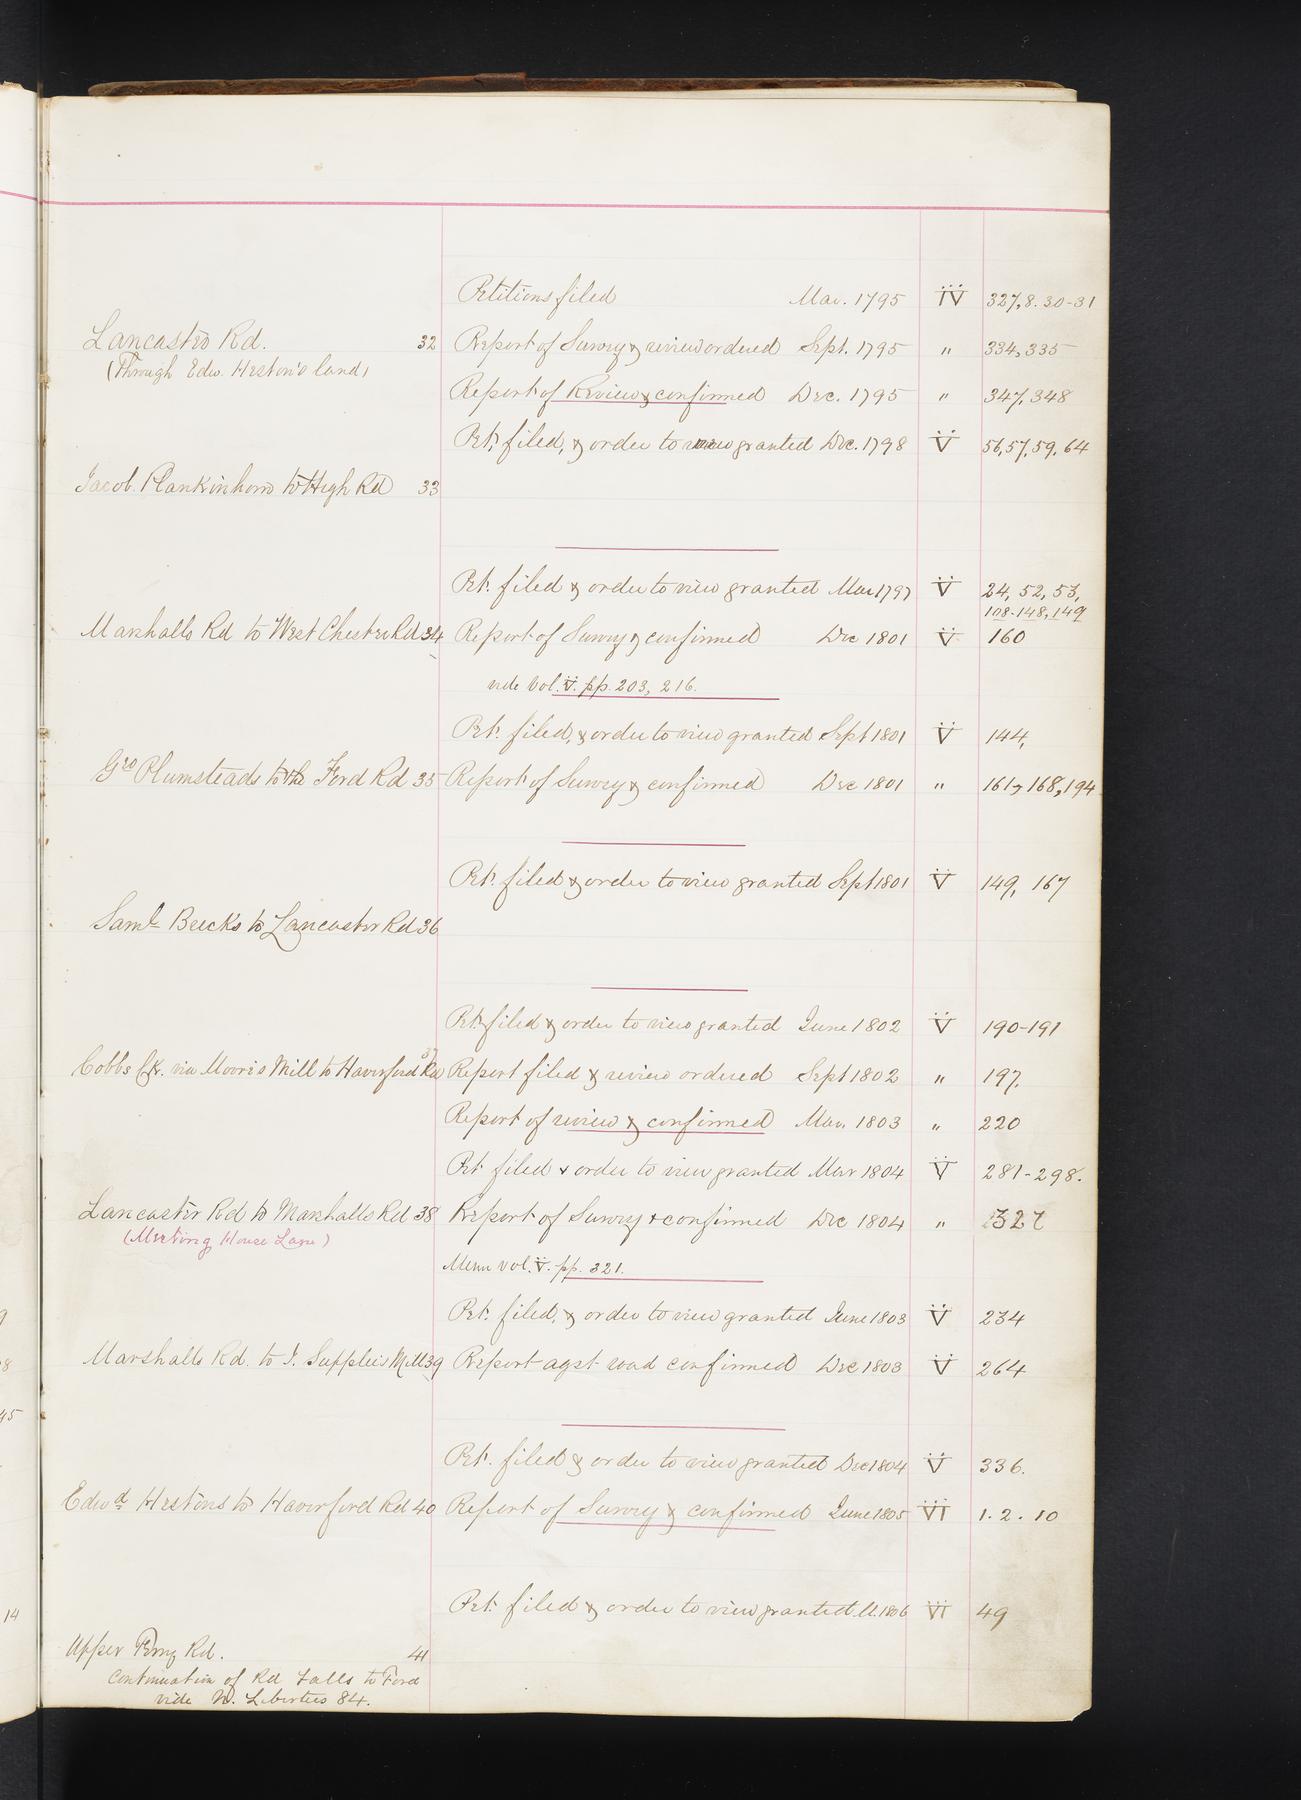 Petitions filed Mar. 1795 IV 327,8.30-31
Lancaster Rd. 32 Report of Survey & review ordered Sept. 1795 " 334,335
(Through Edw. Heston's land)
Report of Review & confirmed Dec. 1795 " 347,348
Pet. filed, & order to view granted Dec. 1798 V 56,57,59,64
Jacob Plankinhorn to High Rd 33
Pet. filed & order to view granted Mar 1797 V 24, 52, 53,
108-148,149
Marshalls Rd to West Chester Rd 34 Report of Survey & confirmed Dec 1801 V 160
vide Vol. V. pp. 203, 216.
Pet. filed, & order to view granted Sept 1801 V 144,
Geo Plumsteads to the Ford Rd 35 Report of Survey & confirmed Dec 1801 " 161, 168, 194
Pet. filed & order to view granted Sept 1801 V 149, 167
Saml Beecks to Lancaster Rd 36
Pet. filed & order to view granted June 1802 V 190-191
Cobbs Ck. via Moore's Mill to Haverford Rd 37 Report filed & review ordered Sept 1802 " 197.
Report of review & confirmed Mar. 1803 " 220
Pet filed & order to view granted Mar 1804 V 281-298.
Lancaster Rd to Marshalls Rd 38 Report of Survey & confirmed Dec 1804 " 327
(Meeting House Lane)
Vol. V. pp. 321.
Pet. filed, & order to view granted June 1803 V 234
Marshalls Rd. to J. Supplees Mill 39 Report agst road confirmed Dec 1803 V 264
Pet. filed & order to view granted Dec 1804 V 336.
Edwd Hestons to Haverford Rd 40 Report of Survey & confirmed June 1805 VI 1. 2. 10
Pet. filed & order to view granted 1806 VI 49
Upper Ferry Rd. 41
Continuation of Rd Falls to Ford
vide N. Liberties 84.